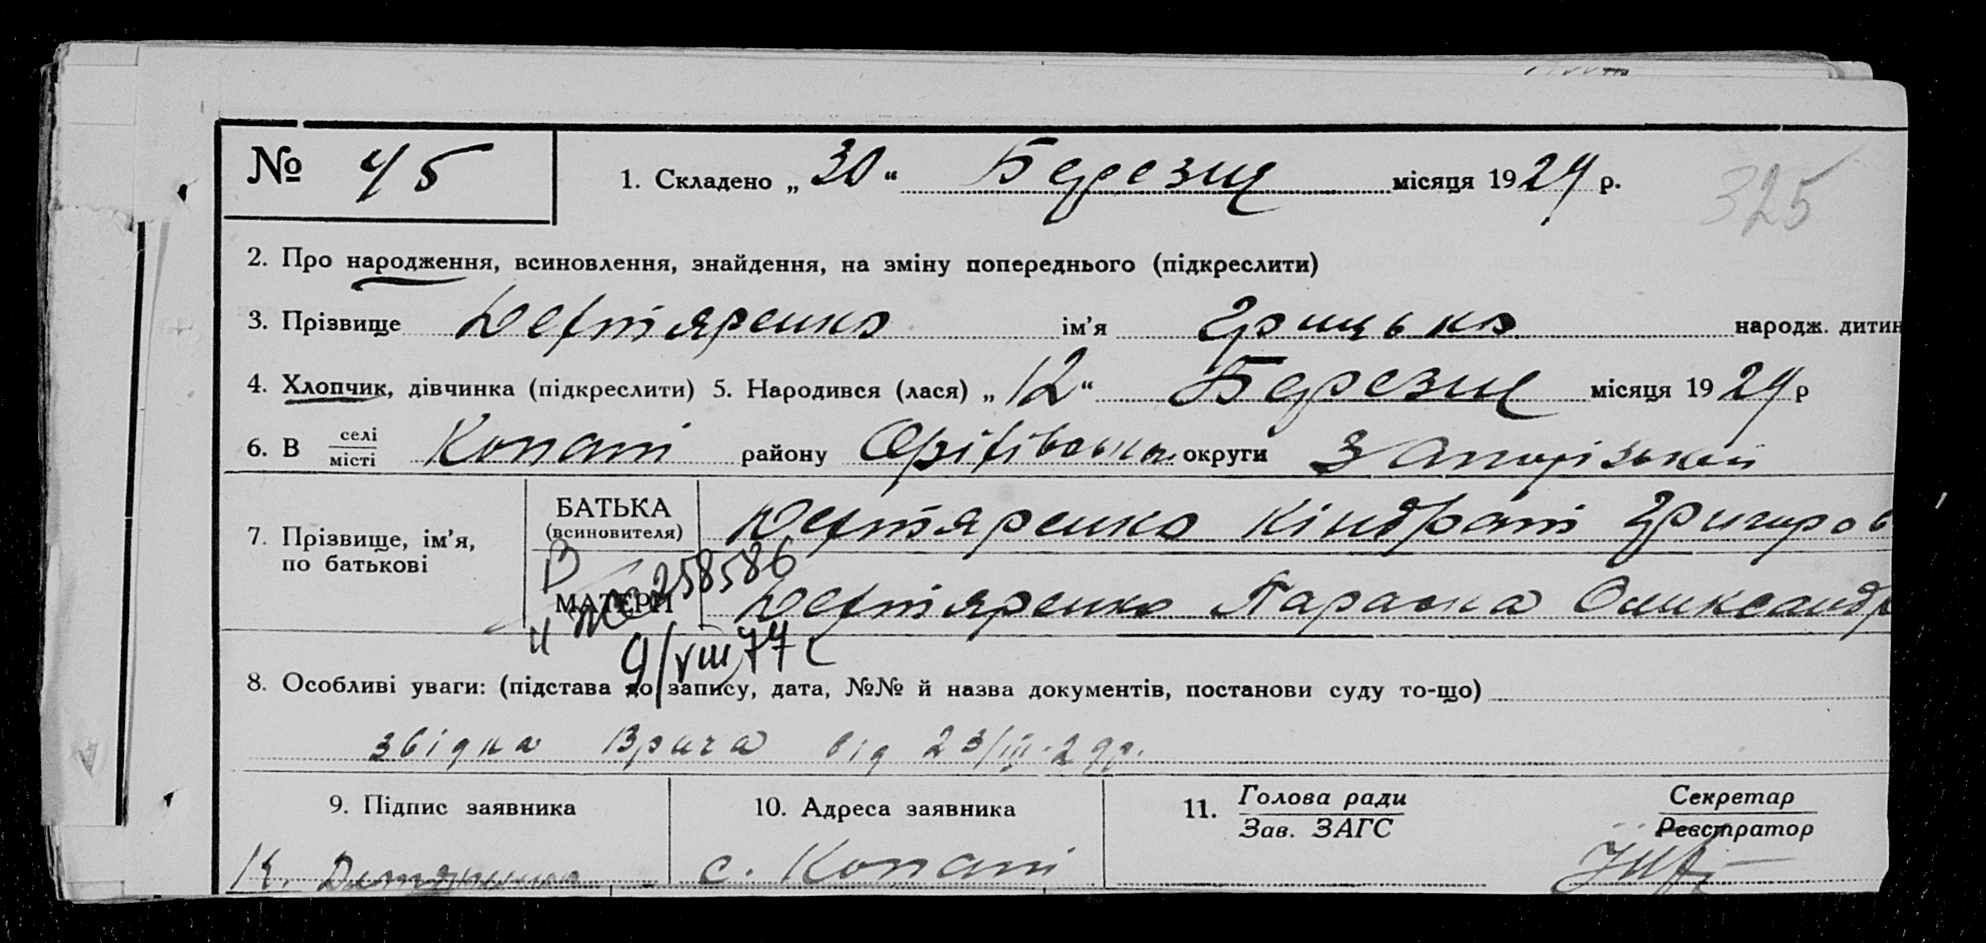 № 45
1. Складено „ 30 “ Березня місяця 1929 р.
325
2. Про народження, всиновлення, знайдення, на зміну попереднього (підкреслити)
3. Прізвище Дегтяренко ім’я Грицько народж. дитин
4. Хлопчик, дівчинка (підкреслити) 5. Народився (лася) „ 12 “ Березня місяця 1929 р
6. В селі місті Копані району Оріхівська округи Запорізької
7. Прізвище, ім’я, по батькові
БАТЬКА (всиновителя) Дегтяренко Кіндрат Григоров
МАТЕРИ Дегтяренко Параска Олександр
258586
9/VIII 77
8. Особливі уваги: (підстава до запису, дата, №№ й назва документів, постанови суду то-що)
звідка Врача від 23/III-29р.
9. Підпис заявника
10. Адреса заявника
11. Голова ради
Зав. ЗАГС
Секретар
Реєстратор
К.
с. Копані